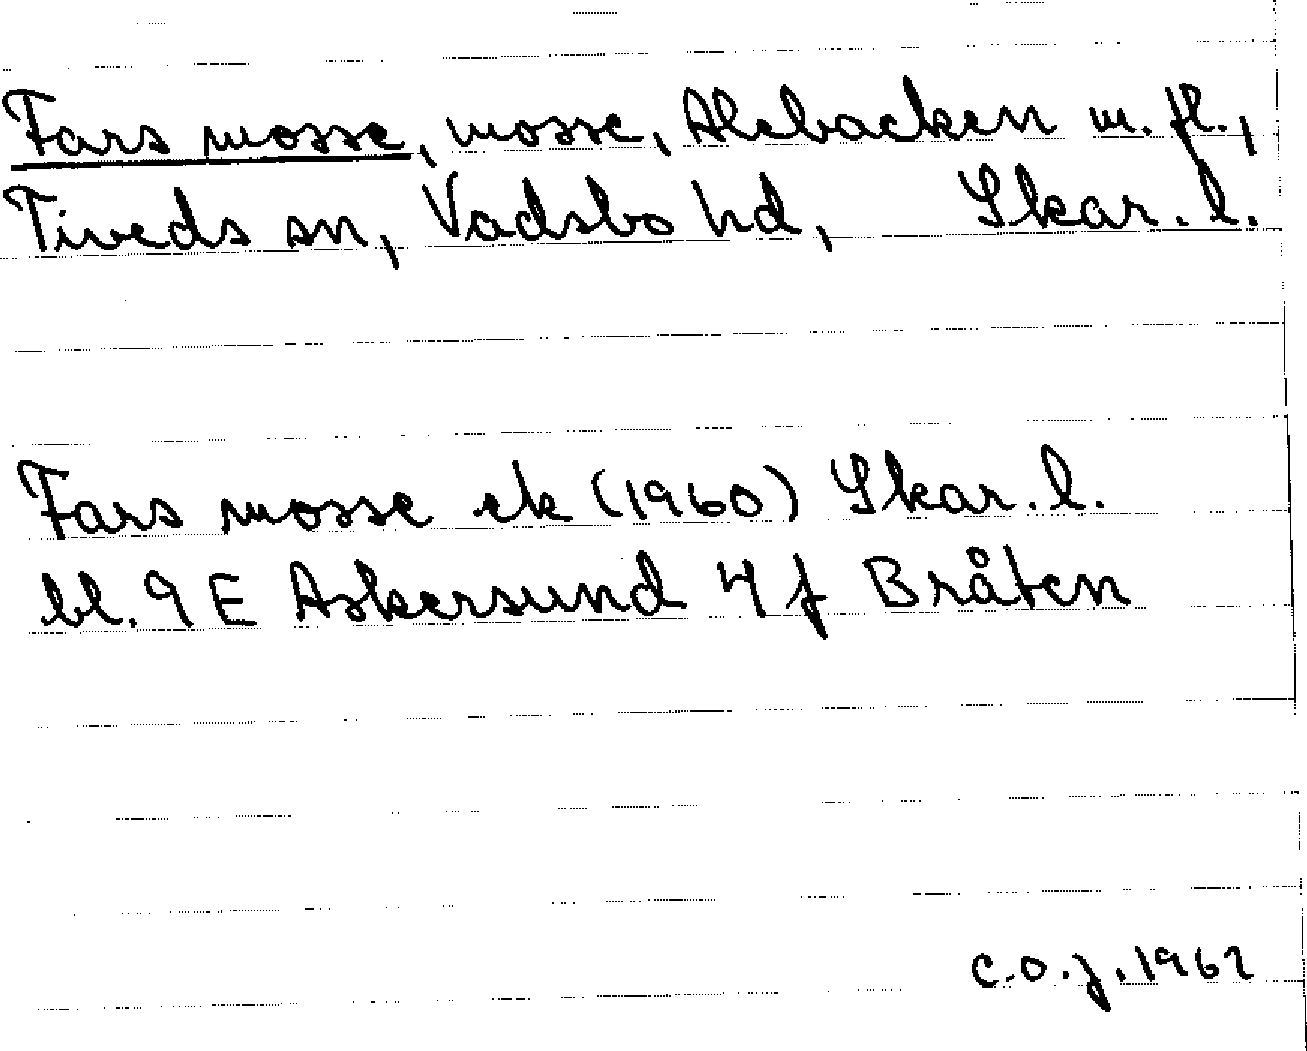 Fars mosse, mosse, Alebacken m. fl.,
Tiveds sn, Vadsbo hd, Skar. l.
Fars mosse ek (1960) Skar. l.
bl. 9 E Askersund 4 f Bråten
C.O.J. 1962